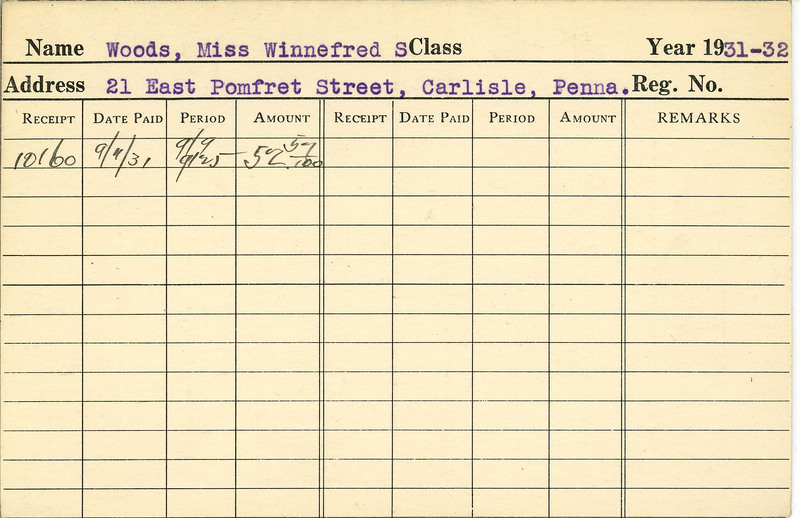 Name Woods, Miss Winnefred S Class Year 1931-32
Address 21 East Pomfret Street, Carlisle, Penna. Reg. No.
RECEIPT DATE PAID PERIOD AMOUNT RECEIPT DATE PAID PERIOD AMOUNT REMARKS
9/9
10160 9/9/31 9/25 52 57/100